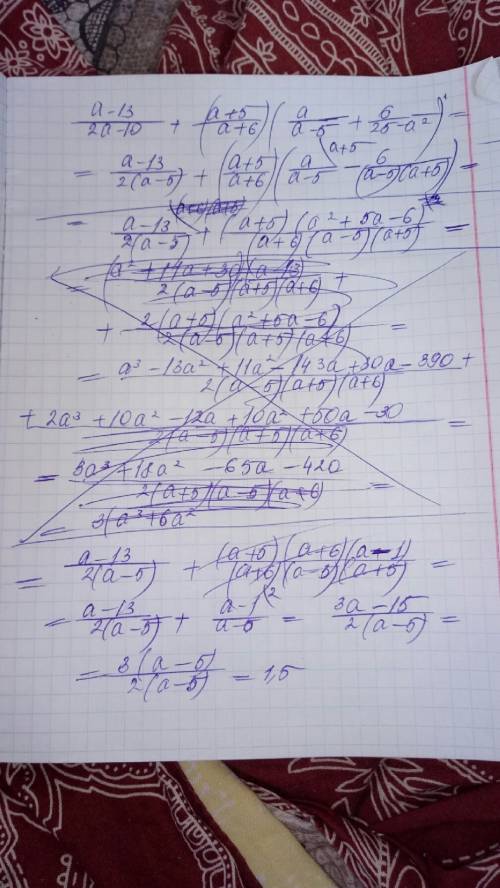 a-13/2a-10 + (a+5/a+6)(a/a-5 + 6/25-a²) =
= a-13/2(a-5) + (a+5/a+6)(a/a-5 (a+5 - 6/(a-5)(a+5)) =
= a-13/2(a-5) + (a+5)(a²+5a-6)/(a+6)(a-5)(a+5) =
= (a²+11a+30)(a-13)/2(a-5)(a+5)(a+6) +
+ 2(a+5)(a²+5a-6)/2(a-5)(a+5)(a+6) =
= a³-13a²+11a²-143a+30a-390+/2(a-5)(a+5)(a+6)
+ 2a³+10a²-12a+10a²+50a-30/2(a-5)(a+5)(a+6) =
= 3a³+18a²-65a-420/2(a+5)(a-5)(a+6) =
= 3(a³+6a²
= a-13/2(a-5) + (a+5)(a+6)(a-1)/(a+6)(a-5)(a+5) =
= a-13/2(a-5) + a-1/a-5 (2 = 3a-15/2(a-5) =
= 3(a-5)/2(a-5) = 1,5